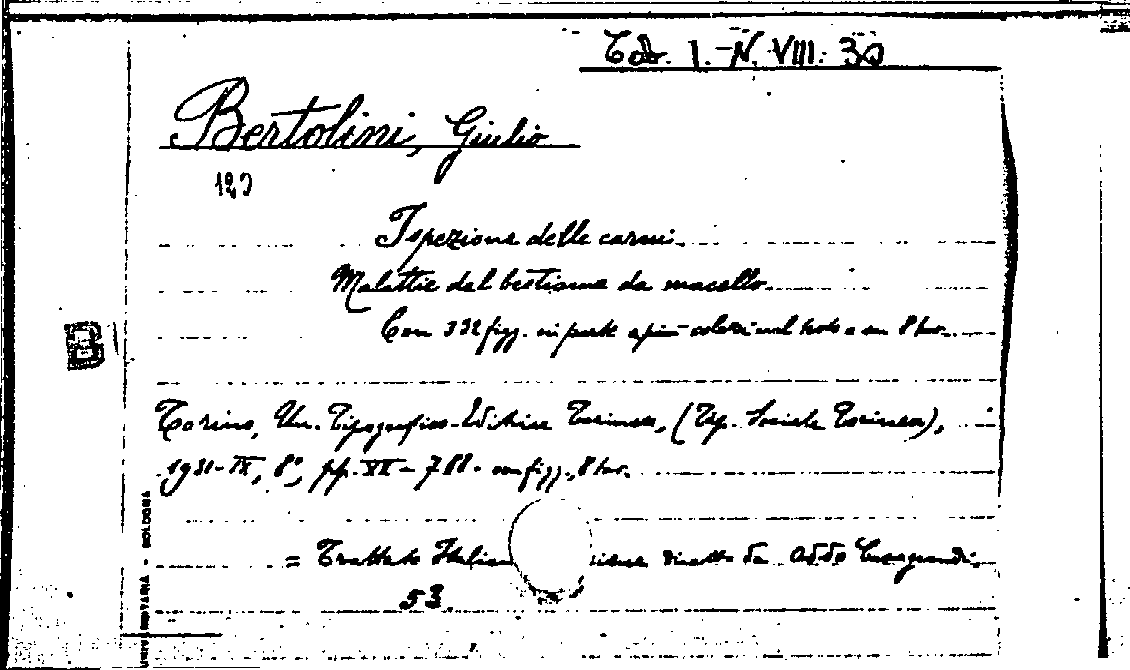 Tab. I. - N. VIII. 30
Bertolini, Giulio
Ispezione delle carni.
Malattie del bestiame da macello.
Con 332 figg. in parte a più colori nel testo e su 8 tav.
Torino, Un. Tipografico-Editrice Torinese, (Tip. Sociale Torinese),
1931-IX, 8°, pp. XII-788. con figg., 8 tav.
= Trattato Italian diretto da Addo Casagrandi.
53.
UNIVERSITARIA - BOLOGNA